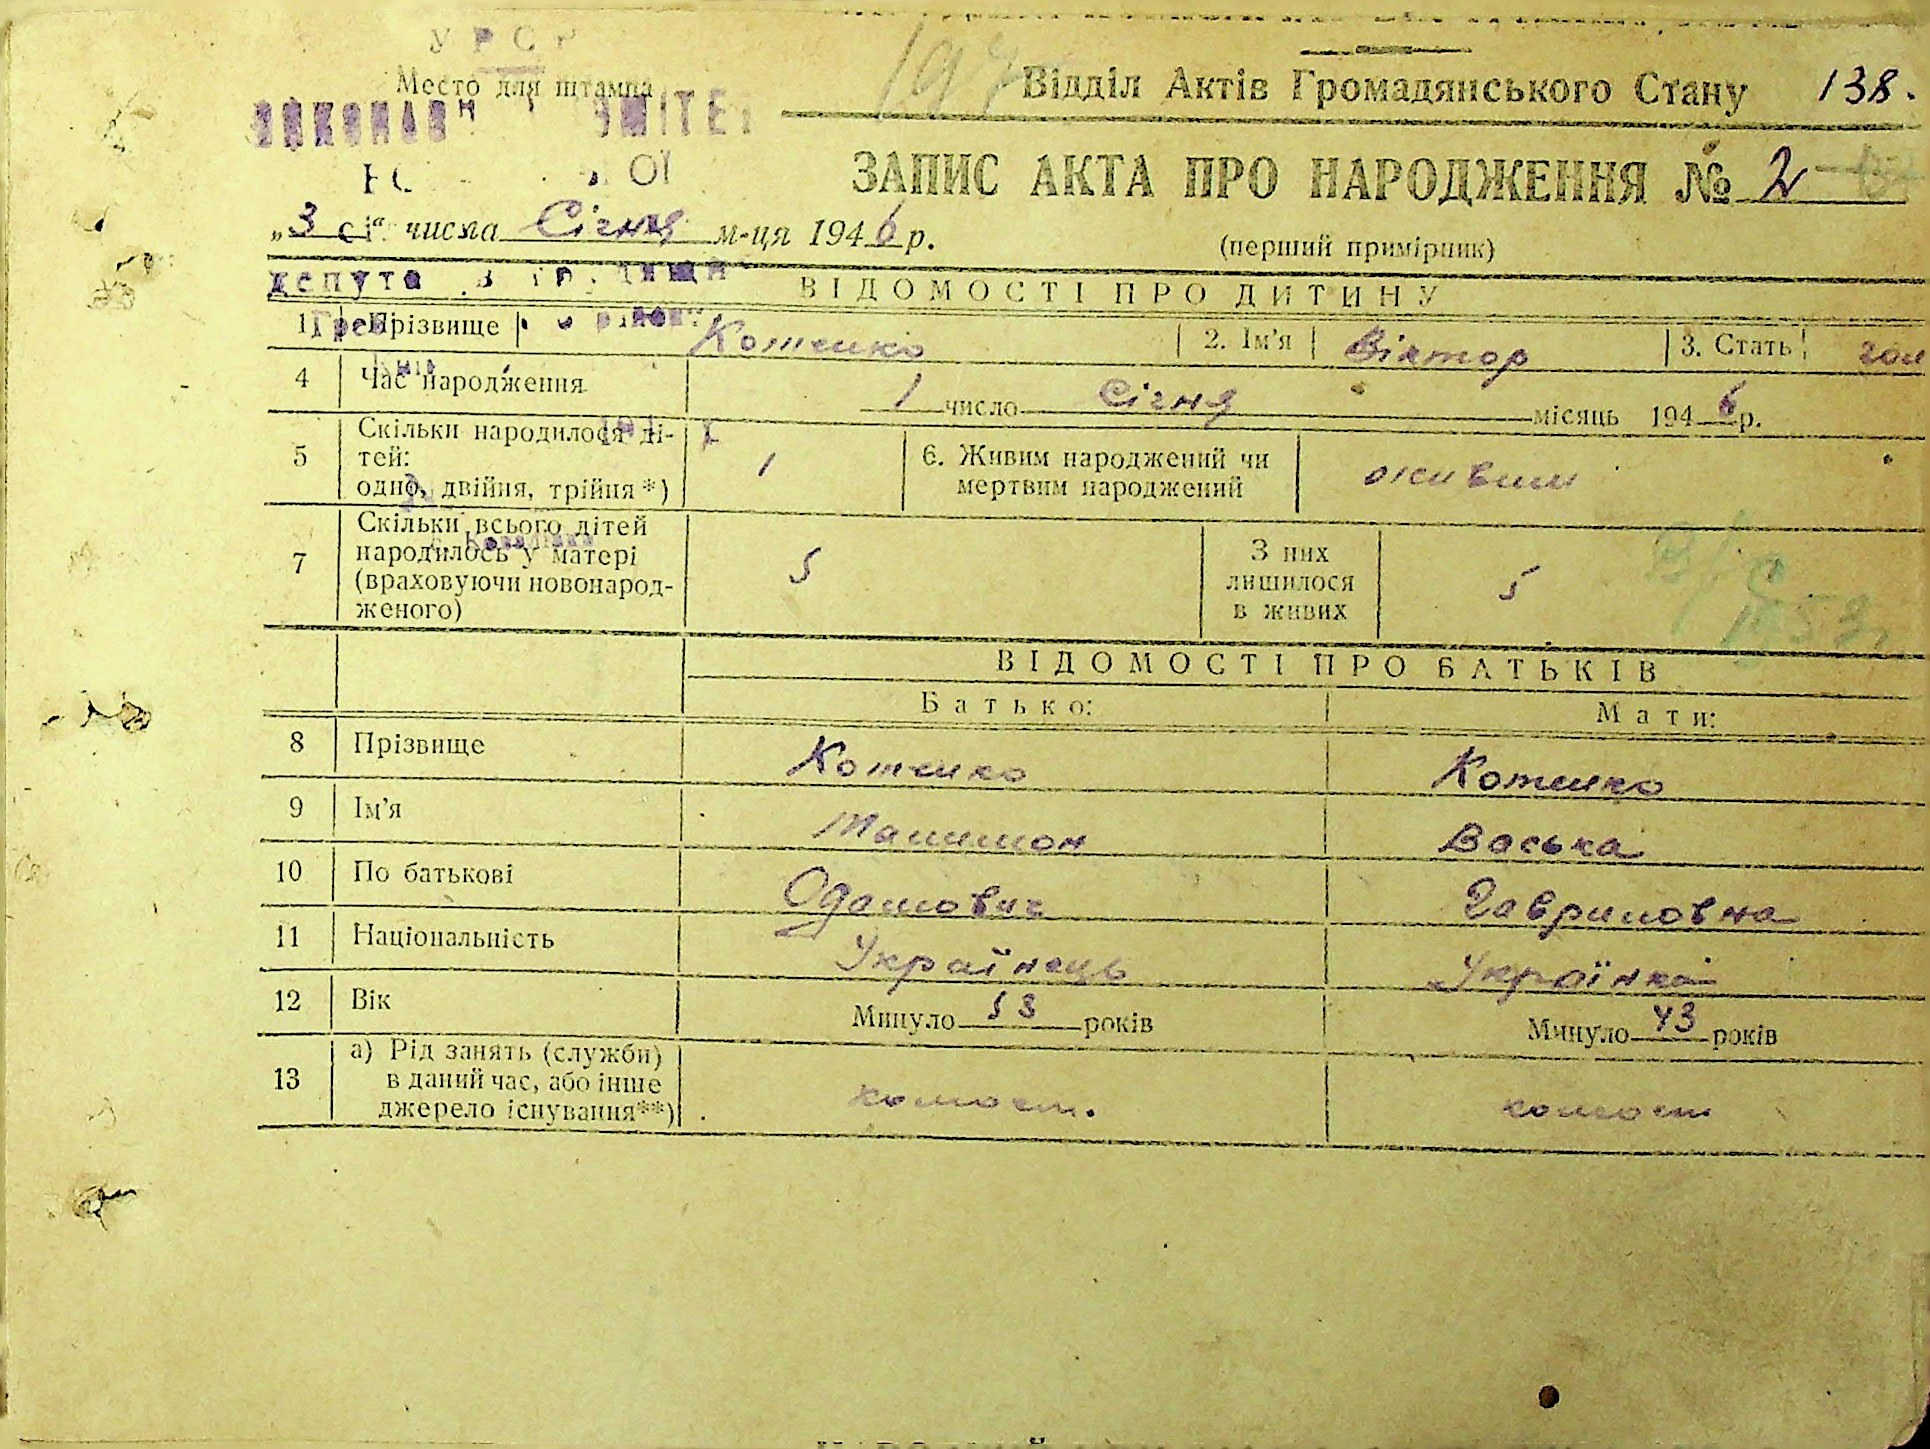 УРСР
Место для штампа
Відділ Актів Громадянського Стану 138.
ЗАПИС АКТА ПРО НАРОДЖЕННЯ № 2
„3“ числа Січня м-ця 1946 р.
(перший примірник)
ВІДОМОСТІ ПРО ДИТИНУ
1 Прізвище Котенко 2. Ім’я Віктор 3. Стать
4 Час народження 1 число Січня місяць 1946 р.
5 Скільки народилося ді-
тей:
одно, двійня, трійня*) 1 6. Живим народжений чи
мертвим народжений живим
7 Скільки всього дітей
народилось у матері
(враховуючи новонарод-
женого) 5 З них
лишилося
в живих 5
ВІДОМОСТІ ПРО БАТЬКІВ
Батько: Мати:
8 Прізвище Котенко Котенко
9 Ім’я Васька
10 По батькові Гавриловна
11 Національність Українець Українка
12 Вік Минуло 53 років Минуло 43 років
13 а) Рід занять (служби)
в даний час, або інше
джерело існування**) колгосп. колгосп